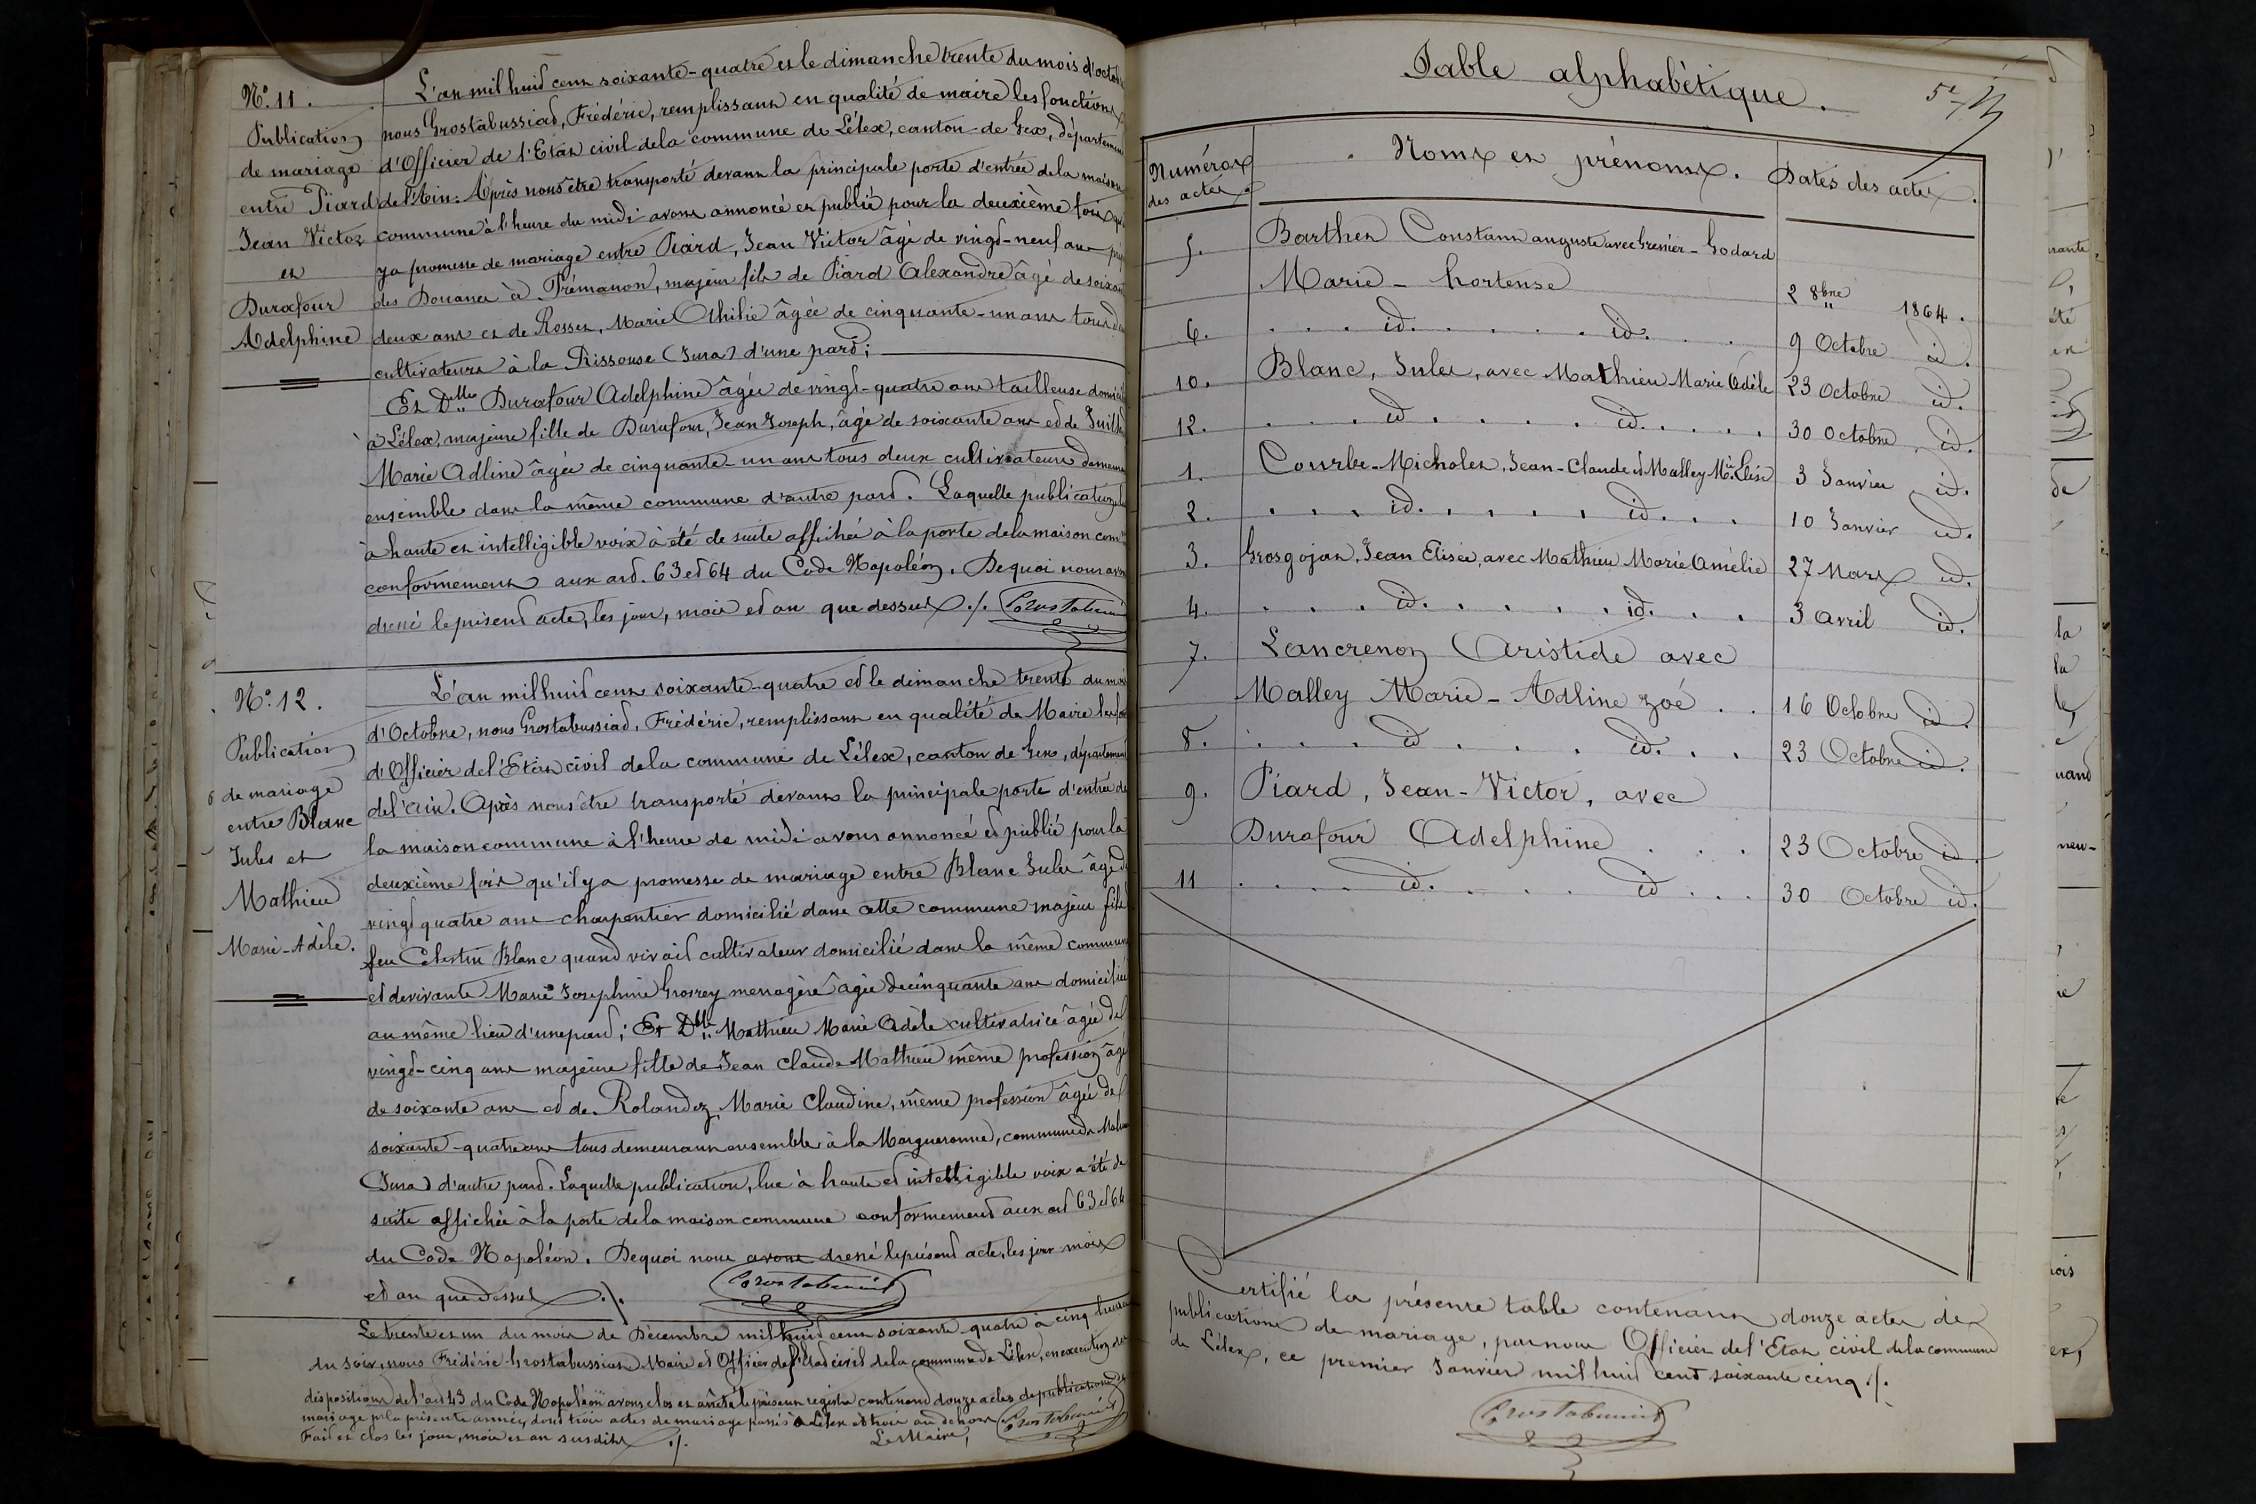 N.o 11.
Publication
de mariage
entre Piard
Jean Victor
et
Durafour
Adelphine
L'an mil huit cent soixante-quatre et le dimanche trente du mois d'octob
nous Grostabussiat, Frédéric, remplissant en qualité de maire les fonctions
d'Officier de l'Etat civil de la commune de Lélex, canton de Gex, département
de l'Ain. Après nous être transporté devant la principale porte d'entrée de la maison
commune à l'heure du midi avons annoncé et publié pour la deuxième fois qu'il
y a promesse de mariage entre Piard, Jean Victor âgé de vingt-neuf ans pré
des Douanes à Prémanon, majeur fils de Piard Alexandre âgé de soixan
deux ans et de Rosset, Marie Othilie âgée de cinquante-un ans tous d
cultivateurs à la Rissouse (Jura) d'une part;
Et Dlle Durafour Adelphine âgée de vingt-quatre ans tailleuse domici
à Lélex, majeure fille de Durafour, Jean Joseph, âgé de soixante ans et de Juill
Marie Adline âgée de cinquante-un ans tous deux cultivateurs demeur
ensemble dans la même commune d'autre part. Laquelle publication
à haute et intelligible voix à été de suite affichée à la porte de la maison com
conformement aux art. 63 et 64 du Code Napoléon. De quoi nous avon
dressé le présent acte, les jour, mois et an que dessus ./. Grostabussiat
N.o 12.
Publication
de mariage
entre Blanc
Jules et
Mathieu
Marie-Adèle.
L'an mil huit cent soixante-quatre et le dimanche trente du mois
d'Octobre, nous Grostabussiat, Frédéric, remplissant en qualité de Maire les fon
d'Officier de l'Etat civil de la commune de Lélex, canton de Gex, département
de l'ain. Après nous être transporté devant la principale porte d'entrée de
la maison commune à l'heure de midi avons annoncé et publié pour la
deuxième fois qu'il y a promesse de mariage entre Blanc Jules âgé de
vingt quatre ans charpentier domicilié dans cette commune majeur fils
feu Celestin Blanc quand vivait cultivateur domicilié dans la même commune
et de vivante Marie Josephine Grosrey menagère âgée de cinquante ans domiciliée
au même lieu d'une part; Et Dlle Mathieu Marie Adèle cultivatrice âgée de
vingt-cinq ans majeure fille de Jean Claude Mathieu même profession âgé
de soixante ans et de Rolandez Marie Claudine, même profession âgée de
soixante-quatre ans tous demeurant ensemble à la Margueronne, commune de
(Jura) d'autre part. Laquelle publication, lue à haute et intelligible voix a été de
suite affichée à la porte de la maison commune conformement aux art 63 et 64
du Code Napoléon. De quoi nous avons dressé le présent acte, les jour mois
et an que dessus ./. Grostabussiat
Le trente et un du mois de Décembre mil huit cent soixante-quatre à cinq heures
du soir, nous Frédéric Grostabussiat Maire et Officier de l'Etat civil de la commune de Lélex, en execution des
dispositions de l'art 43 du Code Napoléon avons clos et arrêté le présent registre contenant douze actes de publications de
mariage pr la présente année, dont trois actes de mariage passés à Lélex et trois au dehors
Fait et clos les jour, mois et an susdits ./. Le Maire, Grostabussiat
Table alphabètique.
5e
Numéros des actes
Noms et prénoms.
Dates des actes.
5. Barthet Constant auguste avec Grenier-Godard
Marie-hortense 2 8bre 1864.
6. . . . id. . . . . id. . . 9 Octobre id.
10. Blanc, Jules, avec Mathieu Marie Adèle 23 Octobre id.
12. . . . id . . . . id. . . . . 30 Octobre id.
1. Courbe-Micholet, Jean-Claude et Malley Mie Elise 3 Janvier id.
2. . . . . id. . . . . id. . . 10 Janvier id.
3. Grosgojat, Jean Elisée, avec Mathieu Marie Amélie 27 Mars id.
4. . . . . id. . . . . id. . . 3 Avril id.
7. Lancrenon Aristide avec
Malley Marie-Adline Zoé . . 16 Octobre id.
8. . . . . id . . . . id. . . 23 Octobre id.
9. Piard, Jean-Victor, avec
Durafour Adelphine . . . 23 Octobre id.
11 . . . . id. . . . id . . . 30 Octobre id.
Certifié la présente table contenant douze actes de
publications de mariage, par nous Officier de l'Etat civil de la commune
de Lélex, ce premier Janvier mil huit cent soixante cinq ./.
Grostabussiat